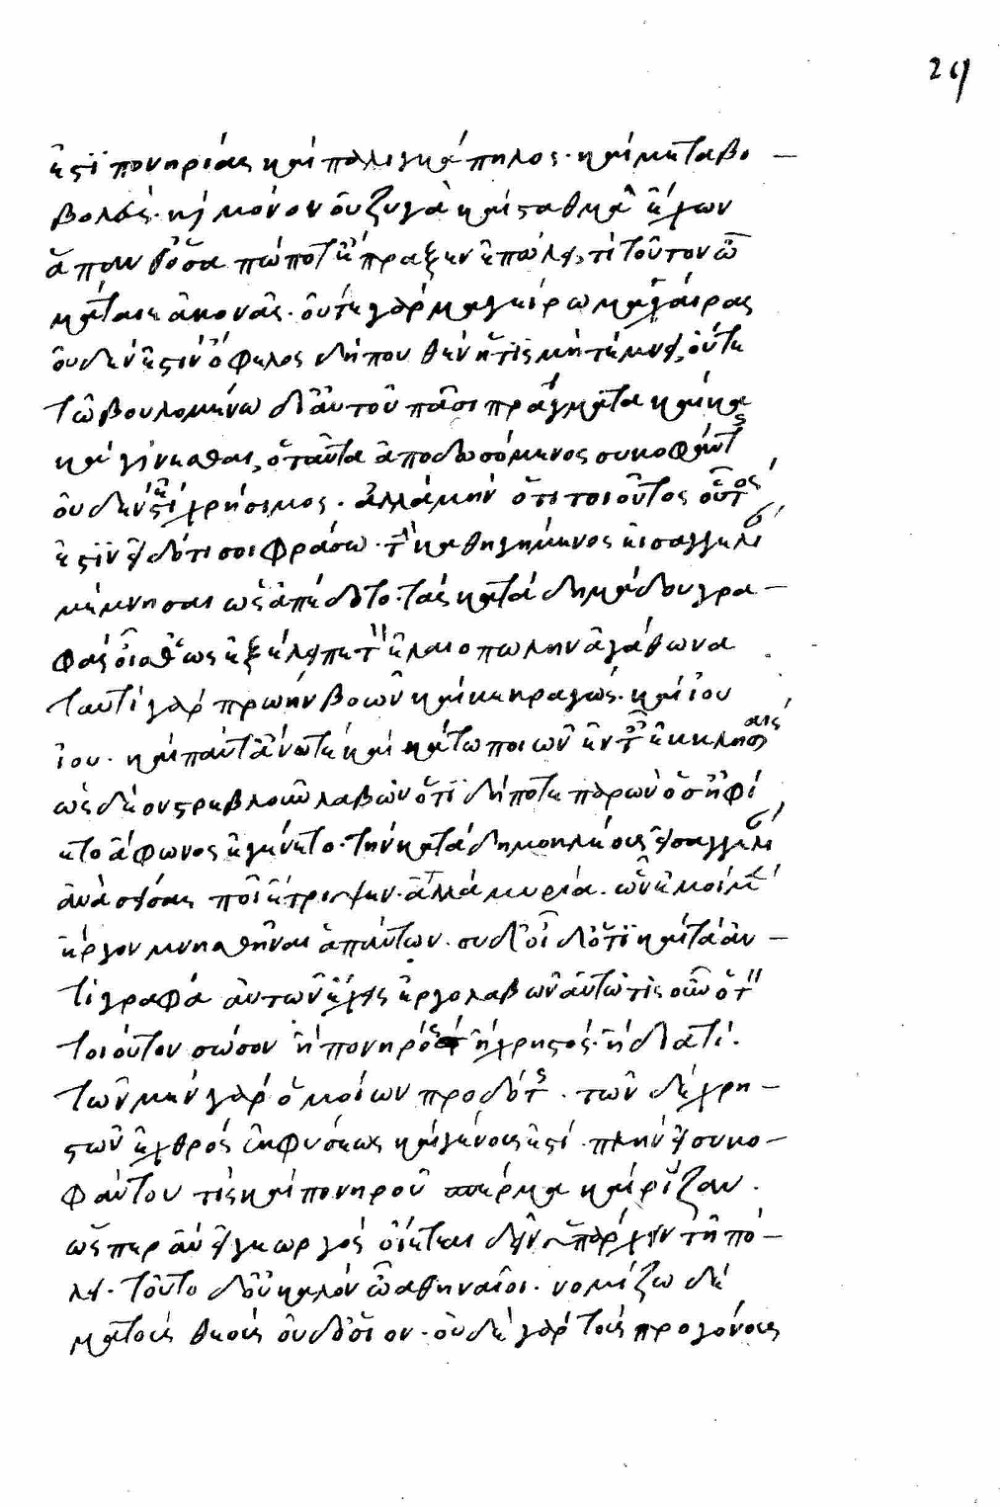 29
ἐστὶ πονηρίας καὶ παλιγκάπηλος· καὶ μεταβο
βολεύς· καὶ μόνον οὐ ζυγὰ καὶ σταθμὰ ἔχων
ἅπανθ' ὅσα πώποτ' ἔπραξεν ἐπώλει, τί τοῦτον ὦ
μάταιε ἀκονᾷς· οὔτε γὰρ μαγείρῳ μαχαίρας
οὐδέν ἐστιν ὄφελος δήπουθεν ἥτις μὴ τέμνει, οὔτε
τῷ βουλομένῳ δι' αὐτοῦ πᾶσι πράγματα καὶ κα
κὰ γίνεσθαι, ὁ ταῦτα ἀποδωσόμενος συκοφάντης
οὐδέν ἐστι χρήσιμος· ἀλλὰ μὴν ὅτι τοιοῦτος οὗτος
ἐστὶν εἰδότι σοι φράσω· τὴν καθ' ἡγήμονος εἰσαγγελί
μέμνησαι ὡς ἀπέδοτο· τὰς κατὰ δημάδου γρα
φὰς οἶσθ' ὡς ἐξέλειπε τὸν ἐλαιοπώλην ἀγάθωνα
ταυτὶ γὰρ πρώην βοῶν καὶ κεκραγώς· καὶ ἰοὺ
ἰού· καὶ πάντ' ἄνω τε καὶ κάτω ποιῶν ἐν ταῖς ἐκκλησίαις
ὡς δέον στρεβλοῦν λαβὼν ὅτι δήποτε παρὼν ὃς ἠφί
ετο ἄφωνος ἐγένετο· τὴν κατὰ δημοκλέους εἰσαγγελί
ἀνασείσας ποῖ ἔτρεψεν· ἀλλὰ μυρία· ὧν ἐμοὶ μὲν
ἔργον μνησθῆναι ἁπάντων· σὺ δ' οἶδ' ὅτι καὶ τὰ ἀν
τίγραφα αὐτῶν ἔχεις ἐργολαβῶν αὐτῷ τίς οὖν ὁ τὸν
τοιοῦτον σώσων ἢ πονηρὸς ἢ χρηστός· ἢ διὰ τί·
τῶν μὲν γὰρ ὁμοίων προδότης· τῶν δὲ χρη
στῶν ἐχθρὸς ἐκ φύσεως καὶ γένους ἐστί· πλὴν εἰ συκο
φάντου τις καὶ πονηροῦ σπέρμα καὶ ῥίζαν·
ὥσπερ ἂν εἰ γεωργὸς οἴεται δεῖν ὑπάρχειν τῇ πό
λει· τοῦτο δ' οὐ καλὸν ὦ ἀθηναῖοι· νομίζω δὲ
μὰ τοὺς θεοὺς οὐδ' ὅσιον· οὐδὲ γὰρ τοὺς προγόνους